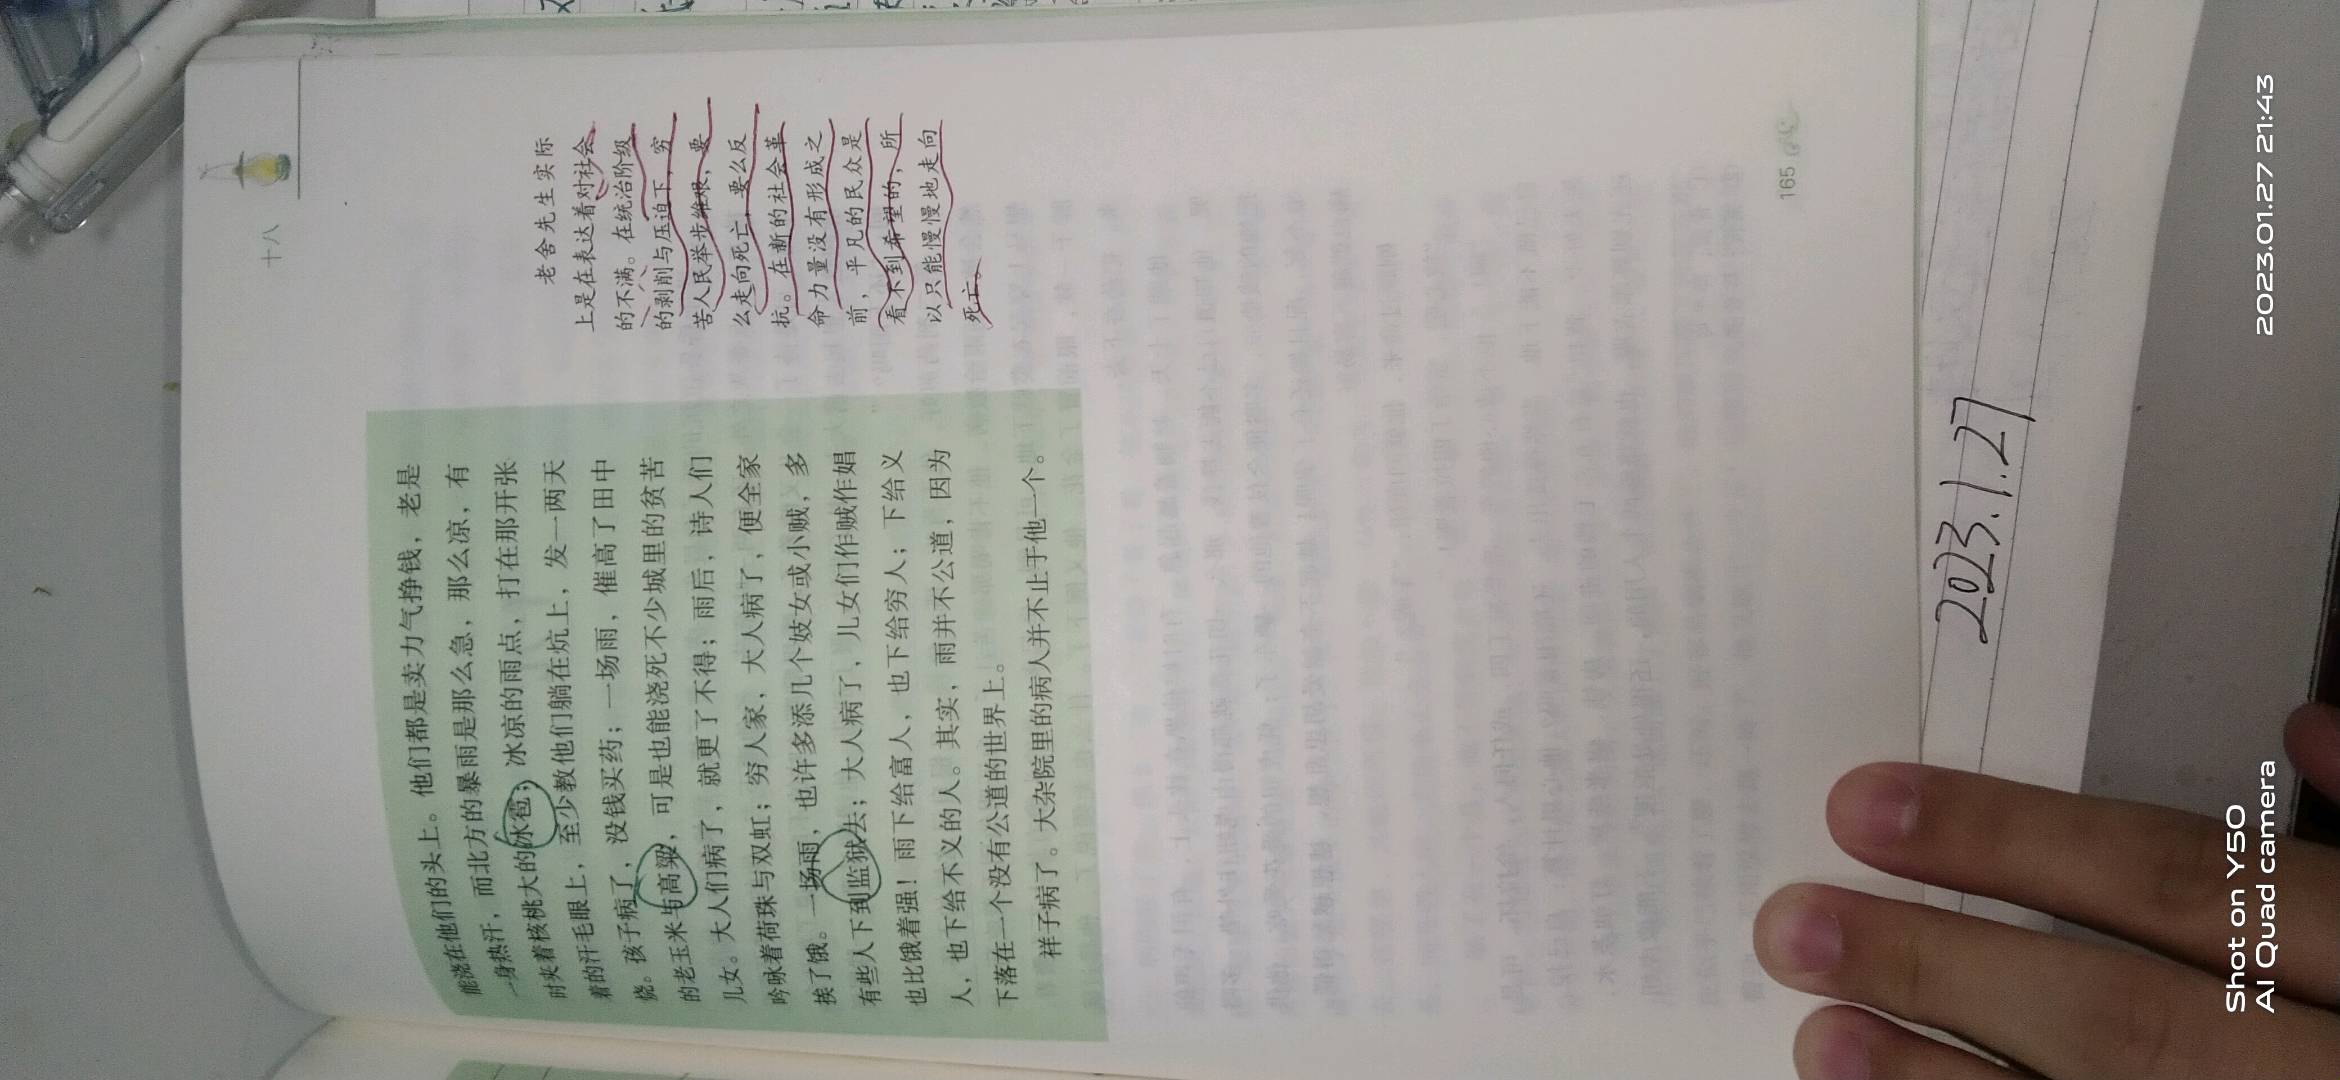 十八
能浇在他们的头上。他们都是卖力气挣钱，老是
一身热汗，而北方的暴雨是那么急，那么凉，有
时夹着核桃大的冰雹；冰凉的雨点，打在那开张
着的汗毛眼上，至少教他们躺在炕上，发一两天
烧。孩子病了，没钱买药；一场雨，催高了田中
的老玉米与高粱，可是也能浇死不少城里的贫苦
儿女。大人们病了，就更了不得；雨后，诗人们
吟咏着荷珠与双虹；穷人家，大人病了，便全家
挨了饿。一场雨，也许多添几个妓女或小贼，多
有些人下到监狱去；大人病了，儿女们作贼作娼
也比饿着强！雨下给富人，也下给穷人；下给义
人，也下给不义的人。其实，雨并不公道，因为
下落在一个没有公道的世界上。
祥子病了。大杂院里的病人并不止于他一个。
老舍先生实际
上是在表达着对社会
的不满。在统治阶级
的剥削与压迫下，穷
苦人民举步维艰，要
么走向死亡，要么反
抗。在新的社会革
命力量没有形成之
前，平凡的民众是
看不到希望的，所
以只能慢慢地走向
死亡。
165
2023.1.27
Shot on Y50
AI Quad camera
2023.01.27 21:43